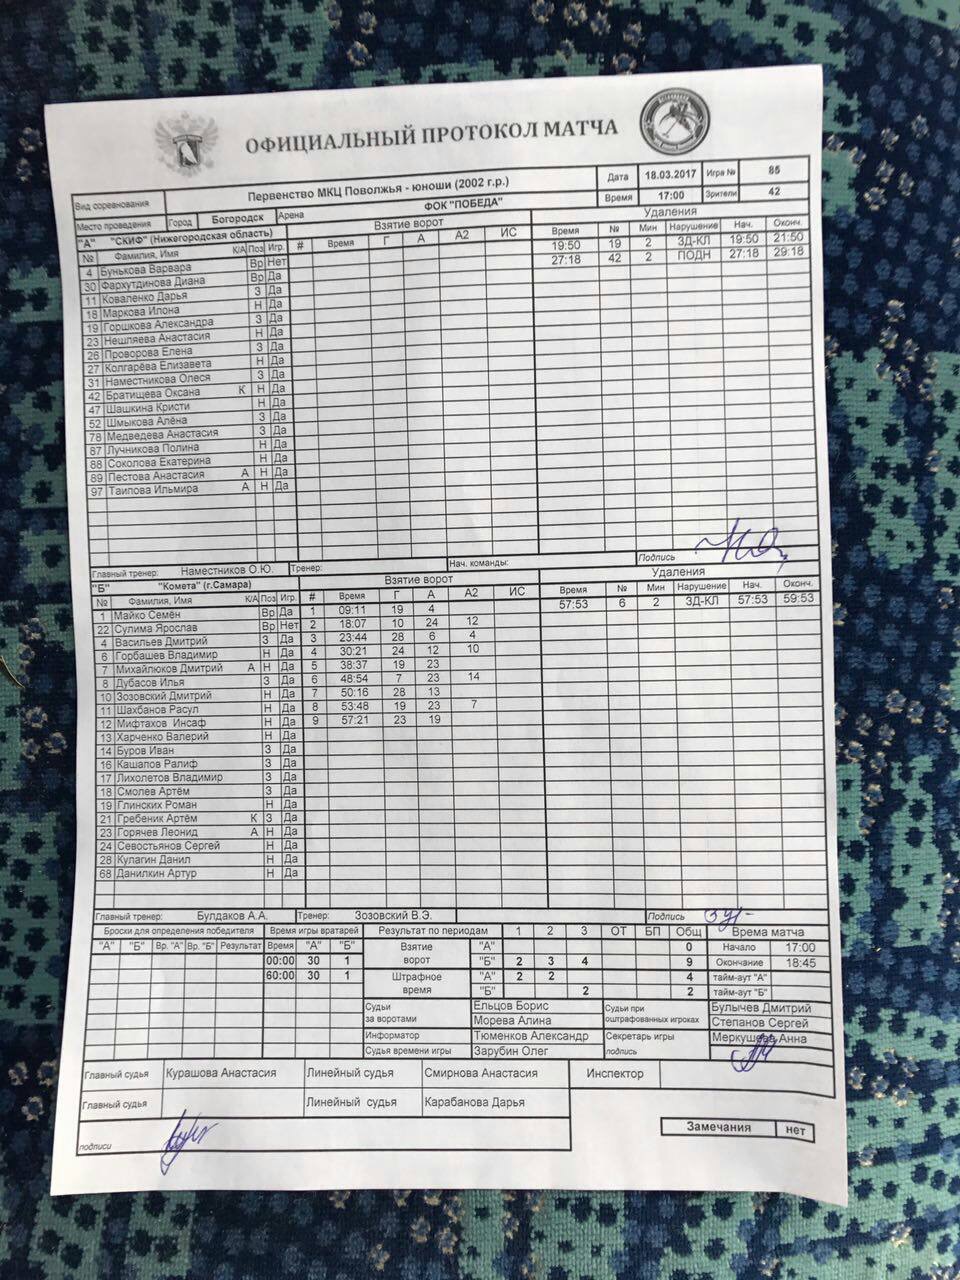 ОФИЦИАЛЬНЫЙ ПРОТОКОЛ МАТЧА
Вид соревнования Первенство МКЦ Поволжья - юноши (2002 г.р.) Дата 18.03.2017 Игра № 85
Место проведения Город Богородск Арена ФОК "ПОБЕДА" Время 17:00 Зрители 42
"А" "СКИФ" (Нижегородская область) Взятие ворот Удаления
№ Фамилия, Имя К/А Поз Игр. # Время Г А А2 ИС Время № Мин Нарушение Нач. Оконч.
4 Бунькова Варвара Вр Нет 19:50 19 2 ЗД-КЛ 19:50 21:50
30 Фархутдинова Диана Вр Да 27:18 42 2 ПОДН 27:18 29:18
11 Коваленко Дарья З Да
18 Маркова Илона Н Да
19 Горшкова Александра З Да
23 Нешляева Анастасия Н Да
26 Проворова Елена З Да
27 Колгарёва Елизавета Н Да
31 Наместникова Олеся З Да
42 Братищева Оксана К Н Да
47 Шашкина Кристи Н Да
52 Шмыкова Алёна З Да
78 Медведева Анастасия З Да
87 Лучникова Полина Н Да
88 Соколова Екатерина Н Да
89 Пестова Анастасия А Н Да
97 Таипова Ильмира А Н Да
Главный тренер: Наместников О.Ю. Тренер: Нач. команды: Подпись
"Б" "Комета" (г.Самара) Взятие ворот Удаления
№ Фамилия, Имя К/А Поз Игр. # Время Г А А2 ИС Время № Мин Нарушение Нач. Оконч.
1 Майко Семён Вр Да 1 09:11 19 4 57:53 6 2 ЗД-КЛ 57:53 59:53
22 Сулима Ярослав Вр Нет 2 18:07 10 24 12
4 Васильев Дмитрий З Да 3 23:44 28 6 4
6 Горбашев Владимир Н Да 4 30:21 24 12 10
7 Михайлюков Дмитрий А Н Да 5 38:37 19 23
8 Дубасов Илья З Да 6 48:54 7 23 14
10 Зозовский Дмитрий Н Да 7 50:16 28 13
11 Шахбанов Расул Н Да 8 53:48 19 23 7
12 Мифтахов Инсаф Н Да 9 57:21 23 19
13 Харченко Валерий Н Да
14 Буров Иван З Да
16 Кашапов Ралиф З Да
17 Лихолетов Владимир З Да
18 Смолев Артём З Да
19 Глинских Роман Н Да
21 Гребеник Артём К З Да
23 Горячев Леонид А Н Да
24 Севостьянов Сергей Н Да
28 Кулагин Данил Н Да
68 Данилкин Артур Н Да
Главный тренер: Булдаков А.А. Тренер: Зозовский В.Э. Подпись
Броски для определения победителя Время игры вратарей Результат по периодам 1 2 3 ОТ БП Общ Врема матча
"А" "Б" Вр. "А" Вр. "Б" Результат Время "А" "Б" Взятие ворот "А" 0 Начало 17:00
00:00 30 1 "Б" 2 3 4 9 Окончание 18:45
60:00 30 1 Штрафное время "А" 2 2 4 тайм-аут "А"
"Б" 2 2 тайм-аут "Б"
Судьи за воротами Ельцов Борис Судьи при оштрафованных игроках Булычев Дмитрий
Морева Алина Степанов Сергей
Информатор Тюменков Александр Секретарь игры Меркушева Анна
Судья времени игры Зарубин Олег подпись
Главный судья Курашова Анастасия Линейный судья Смирнова Анастасия Инспектор
Главный судья Линейный судья Карабанова Дарья
подписи
Замечания нет